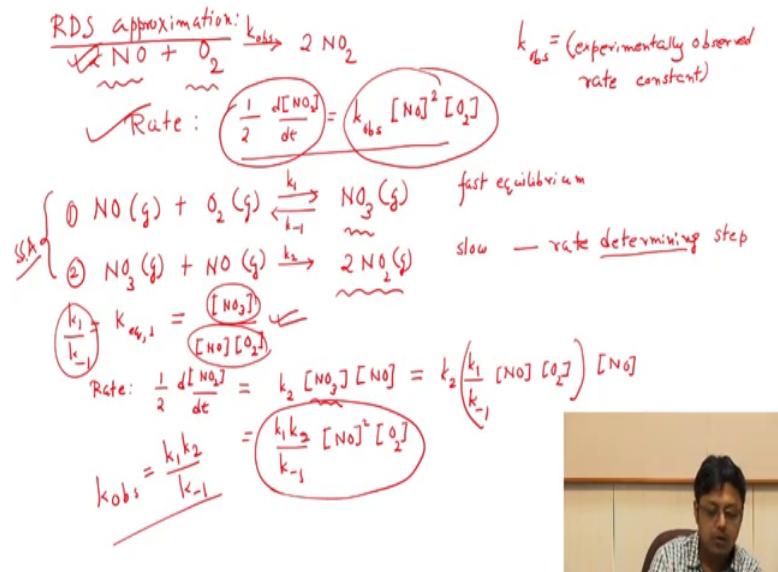 RDS approximation:
2 NO + O₂ —k_obs→ 2 NO₂
k_obs = (experimentally observed
rate constant)
Rate : 1/2 d[NO₂]/dt = k_obs [NO]² [O₂]
① NO(g) + O₂(g) ⇌ (k₁, k₋₁) NO₃(g) fast equilibrium
S.S.A
② NO₃(g) + NO(g) —k₂→ 2NO₂(g) slow — rate determining step
k₁/k₋₁ = K_eq,1 = [NO₃]/[NO][O₂]
Rate: 1/2 d[NO₂]/dt = k₂ [NO₃][NO] = k₂ (k₁/k₋₁ [NO][O₂]) [NO]
= k₁k₂/k₋₁ [NO]² [O₂]
k_obs = k₁k₂/k₋₁